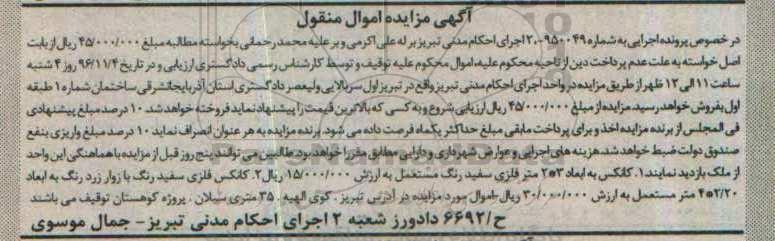 آگهی مزایده اموال منقول
در خصوص پرونده اجرایی به شماره ۹۵۰۰۴۹-۲۰ اجرای احکام مدنی تبریز بر له علی اکرمی و بر علیه محمد رحمانی بخواسته مطالبه مبلغ ۴۵/۰۰۰/۰۰۰ ریال از بابت
اصل خواسته به علت عدم پرداخت دین از ناحیه محکوم علیه، اموال محکوم علیه توقیف و توسط کارشناس رسمی دادگستری ارزیابی و در تاریخ ۹۶/۱۱/۴ روز ۴ شنبه
ساعت ۱۱ الی ۱۲ ظهر از طریق مزایده در واحد اجرای احکام مدنی تبریز واقع در تبریز اول سربالایی ولیعصر دادگستری استان آذربایجانشرقی ساختمان شماره ۱ طبقه
اول بفروش خواهد رسید. مزایده از مبلغ ۴۵/۰۰۰/۰۰۰ ریال ارزیابی شروع و به کسی که بالاترین قیمت را پیشنهاد نماید فروخته خواهد شد. ۱۰ درصد مبلغ پیشنهادی
فی المجلس از برنده مزایده اخذ و برای پرداخت مابقی مبلغ حداکثر یکماه فرصت داده می شود. برنده مزایده به هر عنوان انصراف نماید ۱۰ درصد مبلغ واریزی بنفع
صندوق دولت ضبط خواهد شد. هزینه های اجرایی و عوارض شهرداری و دارایی مطابق مقررا خواهد بود. طالبین می توانند پنج روز قبل از مزایده با هماهنگی این واحد
از ملک بازدید نمایند: ۱. کانکس به ابعاد ۲*۳ متر فلزی سفید رنگ مستعمل به ارزش ۱۵/۰۰۰/۰۰۰ ریال ۲. کانکس فلزی سفید رنگ با زوار زرد رنگ به ابعاد
۲/۲۰*۴ متر مستعمل به ارزش ۳۰/۰۰۰/۰۰۰ ریال-اموال مورد مزایده در آدرس تبریز . کوی الهیه . ۳۵ متری سبلان . پروژه کوهستان توقیف می باشند
ح/۶۶۹۲ دادورز شعبه ۲ اجرای احکام مدنی تبریز- جمال موسوی